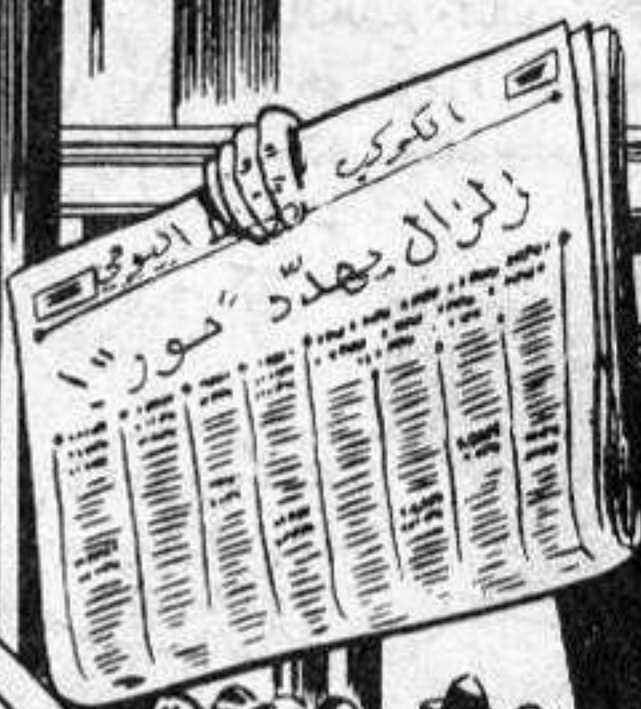 الكوكب اليومي
زلزال يهدّد "نور" !